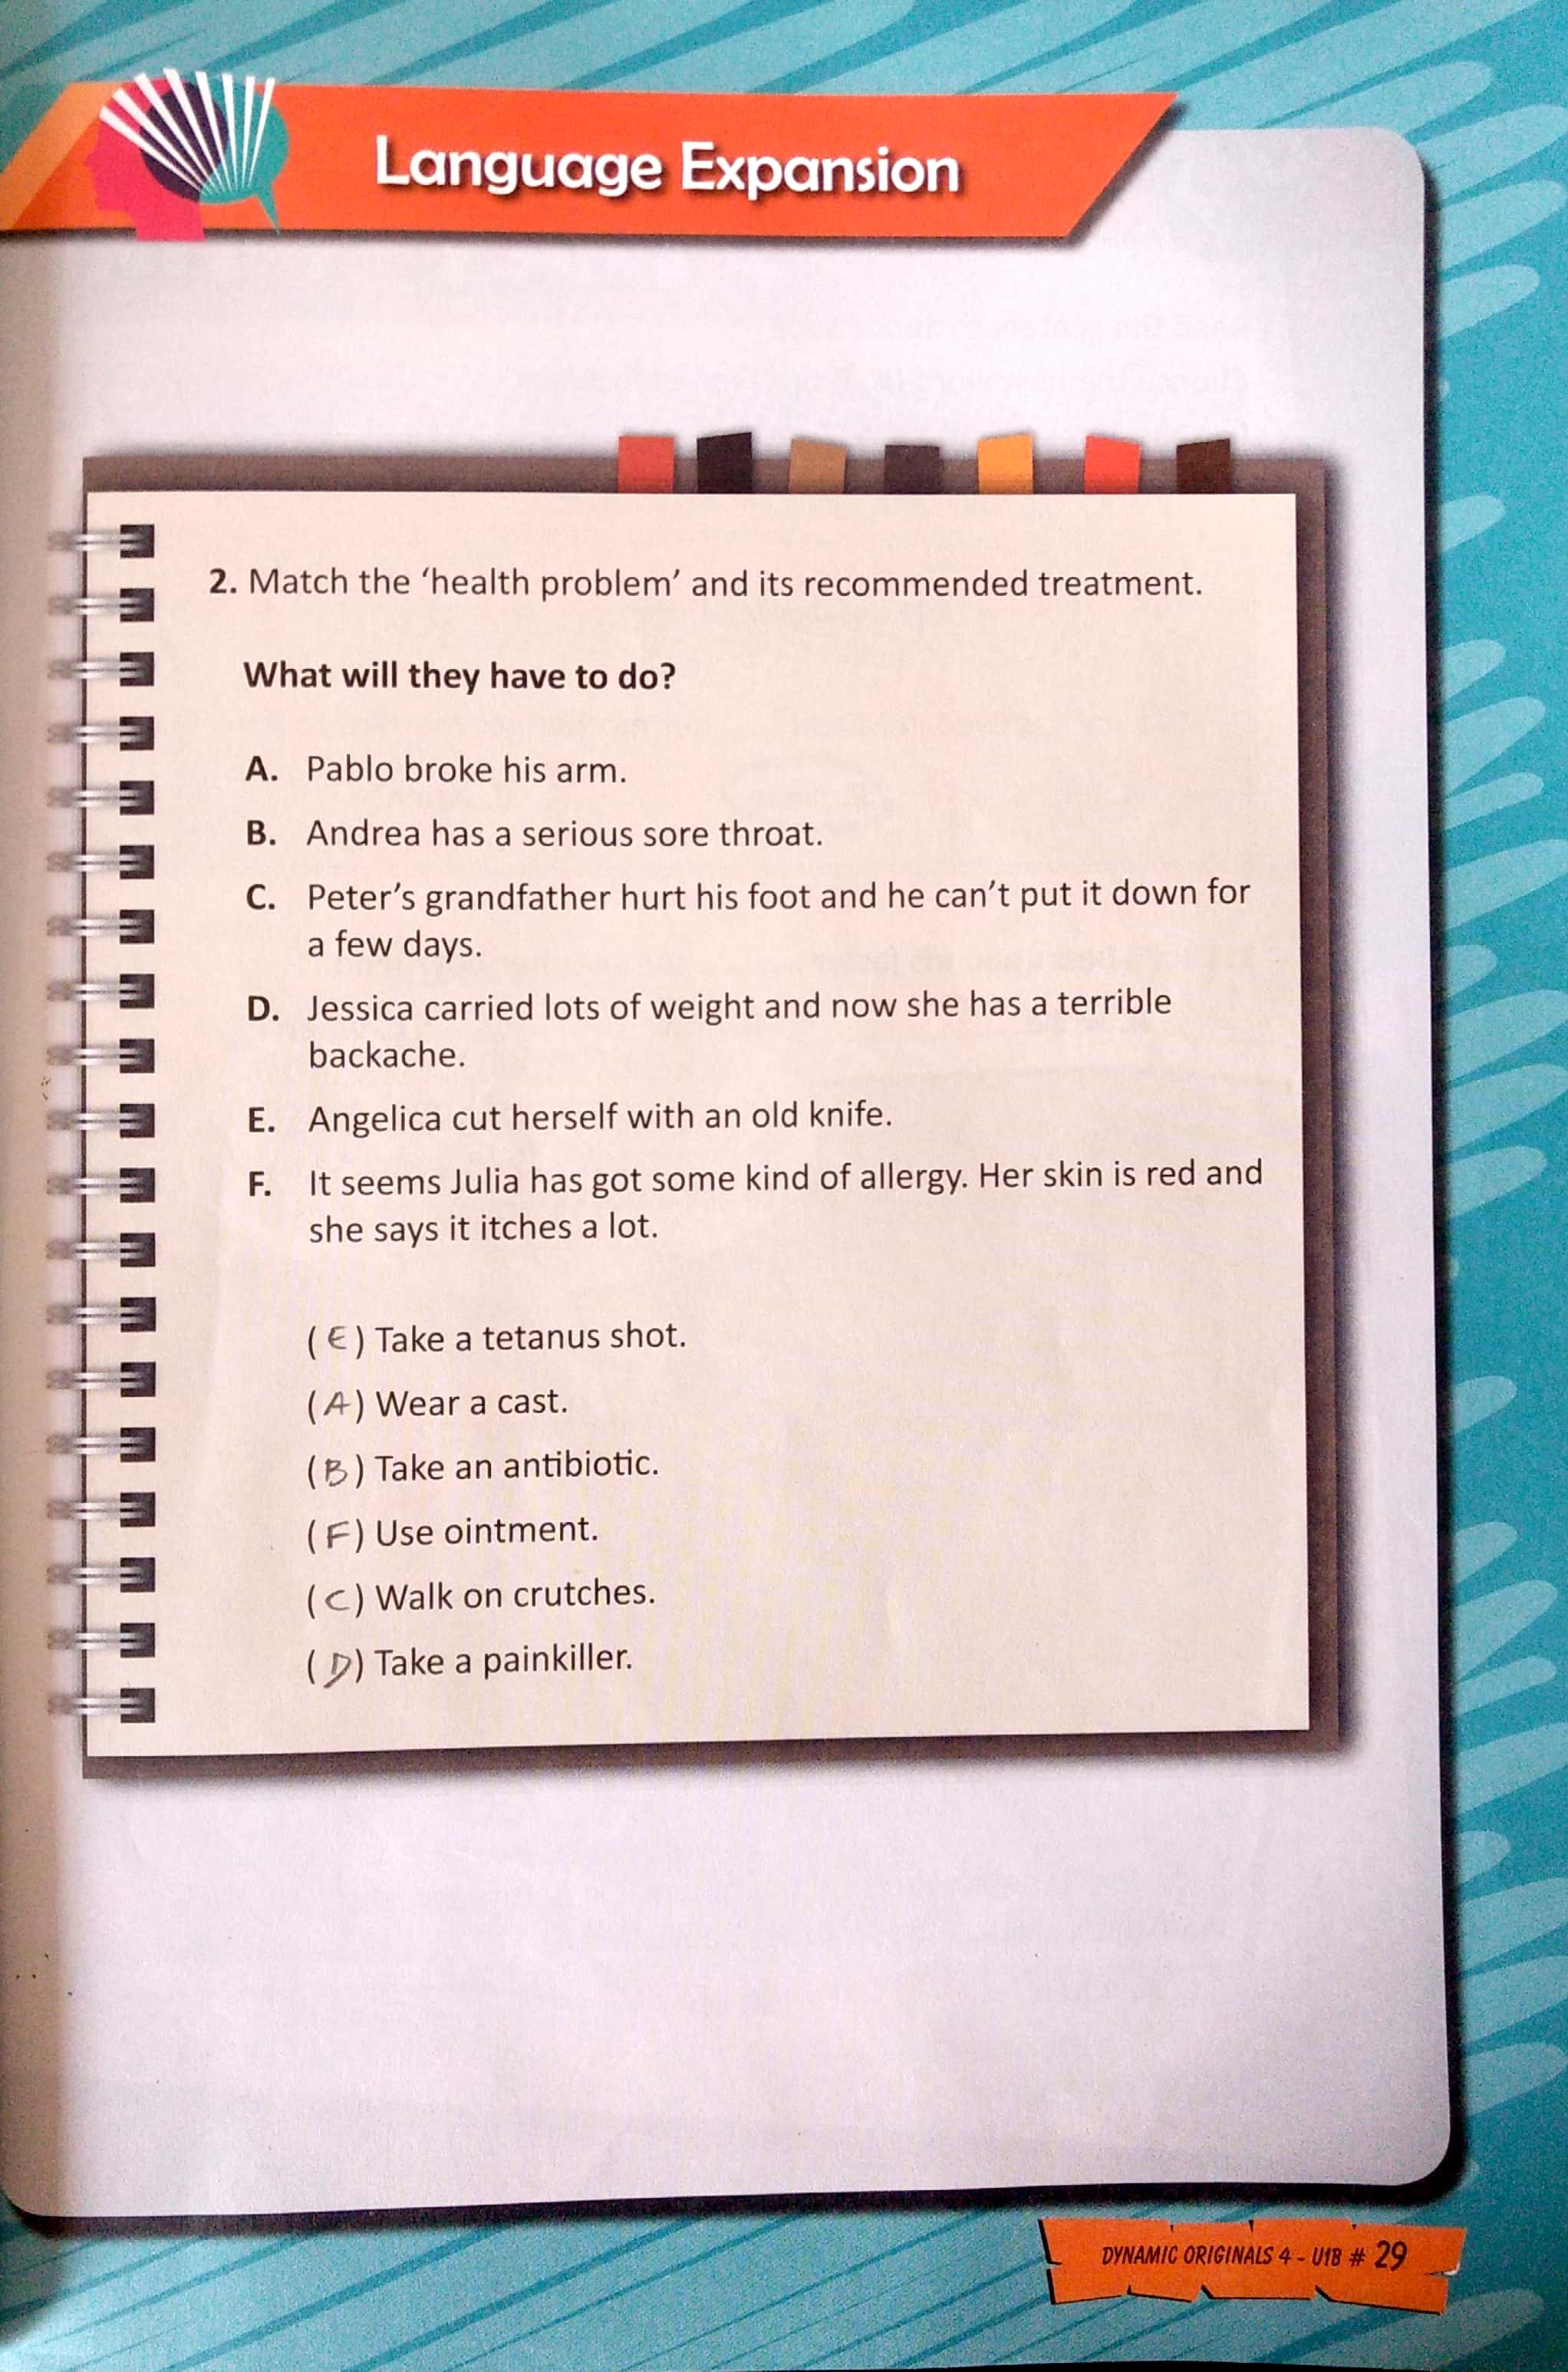 Language Expansion
2. Match the ‘health problem’ and its recommended treatment.
What will they have to do?
A. Pablo broke his arm.
B. Andrea has a serious sore throat.
C. Peter’s grandfather hurt his foot and he can’t put it down for
a few days.
D. Jessica carried lots of weight and now she has a terrible
backache.
E. Angelica cut herself with an old knife.
F. It seems Julia has got some kind of allergy. Her skin is red and
she says it itches a lot.
(E) Take a tetanus shot.
(A) Wear a cast.
(B) Take an antibiotic.
(F) Use ointment.
(C) Walk on crutches.
(D) Take a painkiller.
DYNAMIC ORIGINALS 4 - U1B # 29